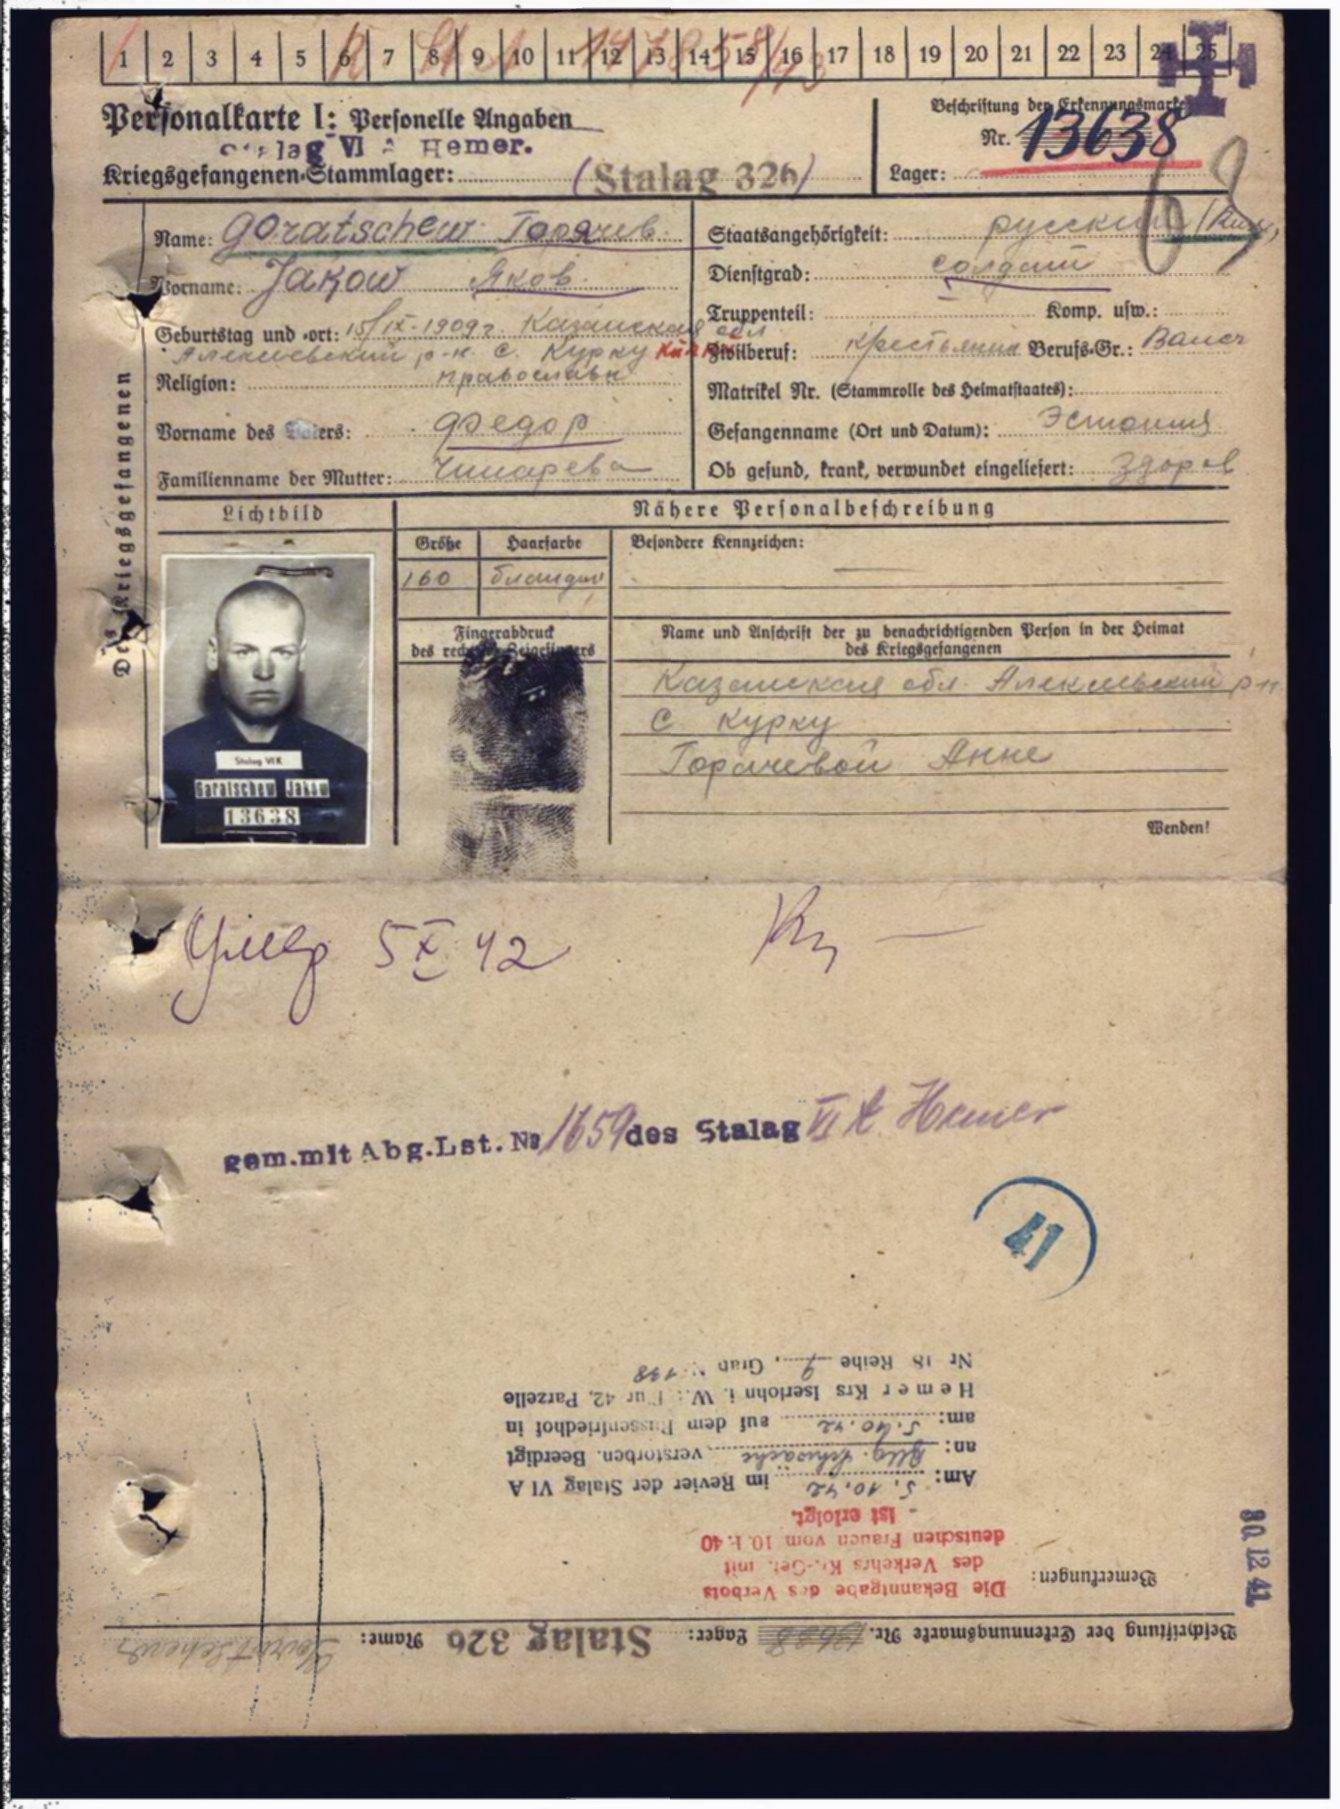 1 2 3 4 5 6 7 8 9 10 11 12 13 14 15 16 17 18 19 20 21 22 23 24 25
Personalkarte I: Personelle Angaben
Beschriftung der Erkennungsmarke
Stalag VI A Hemer.
Nr. 13638
Kriegsgefangenen-Stammlager: (Stalag 326)
Lager:
Des Kriegsgefangenen
Name: Goratschew Горячев
Staatsangehörigkeit: русский
Vorname: Jakow Яков
Dienstgrad: солдат
Truppenteil: Komp. usw.:
Geburtstag und -ort: 15/IX-1909г. Казанская обл
Алексеевский р-н с. Курку
Zivilberuf: крестьянин Berufs-Gr.: Bauer
Religion: православн
Matrikel Nr. (Stammrolle des Heimatstaates):
Vorname des Vaters: Федор
Gefangenname (Ort und Datum): Эстония
Familienname der Mutter: Чинарева
Ob gesund, krank, verwundet eingeliefert: здоров
Lichtbild
Nähere Personalbeschreibung
Größe Haarfarbe Besondere Kennzeichen:
160 блондин —
Fingerabdruck
des rechten Zeigefingers
Name und Anschrift der zu benachrichtigenden Person in der Heimat
des Kriegsgefangenen
Казанская обл. Алексеевский р-н
с Курку
Горячевой Анне
Stalag VI K
Goratschew Jakow
13638
Wenden!
Умер 5 X 42
gem.mit Abg.Lst. № 1659 des Stalag VI A Hemer
41
30.12.41
Beschriftung der Erkennungsmarke Nr. 13638 Lager: Stalag 326 Name: Goratschew
Bemerkungen:
Die Bekanntgabe des Verbots
des Verkehrs Kr.-Gef. mit
deutschen Frauen vom 10.1.40
- ist erfolgt.
Am: 5.10.42 im Revier der Stalag VI A
an: Allg. Schwäche verstorben. Beerdigt
am: 5.10.42 auf dem Russenfriedhof in
Hemer Krs Iserlohn i. W.: Flur 42, Parzelle
Nr 18 Reihe 9, Grab № 198